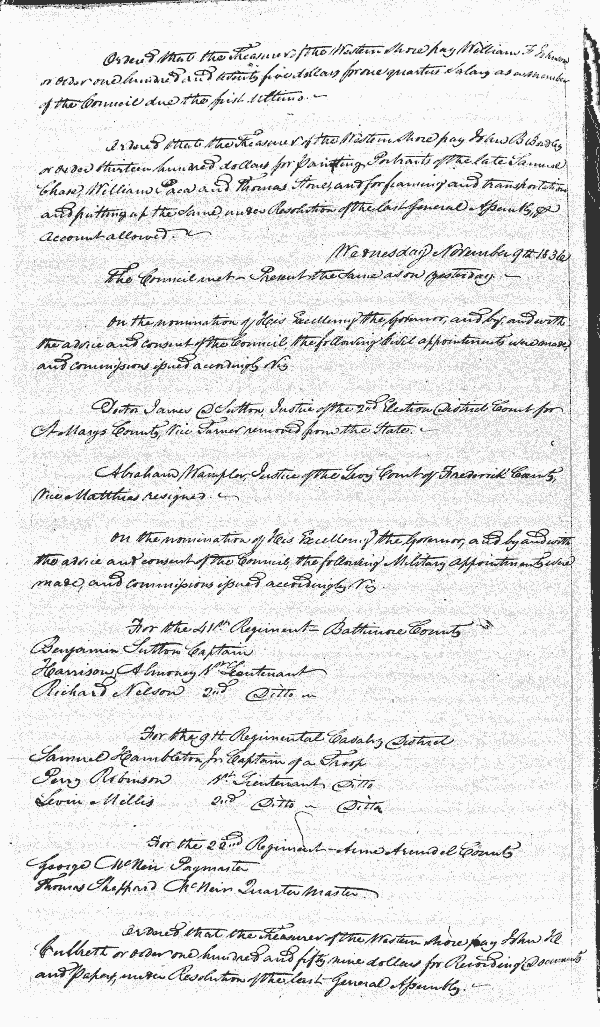 Ordered that the Treasurer of the Western Shore pay William F Johnson
or order one hundred and twenty five dollars for one quarters Salary as a member
of the Council due the first ultimo.
Ordered that the Treasurer of the Western Shore pay John B Bordley
or order thirteen hundred dollars for Painting Portraits of the late Samuel
Chase, William Paca and Thomas Stone, and for framing and transportation
and putting up the Same, under Resolution of the last General Assembly, &
account allowed.
Wednesday November 9th 1836
The Council met – Present the Same as on yesterday.
On the nomination of His Excellency the Governor, and by, and with
the advice and consent of the Council the following Civil appointments were made
and commissions issued accordingly Viz
Doctor James Sutton, Justice of the 2nd Election District Court for
St Marys County, Vice Turner removed from the State.
Abraham Wampler, Justice of the Levy Court of Frederick County,
Vice Matthias resigned.
On the nomination of His Excellency the Governor, and by and with
the advice and consent of the Council, the following Military appointments were
made, and commissions issued accordingly Viz
For the 41st Regiment – Baltimore County
Benjamin Sutton Captain
Harrison Almoney 1st Lieutenant
Richard Nelson 2nd Ditto
For the 9th Regimental Cavalry District
Samuel Hambleton Jr Captain of a Troop
Perry Robinson 1st Lieutenant Ditto
Levin Millis 2nd Ditto Ditto
For the 22nd Regiment – Anne Arundel County
George McNeir Paymaster
Thomas Sheppard McNeir Quarter Master
Ordered that the Treasurer of the Western Shore pay John
Culbreth or order one hundred and fifty nine dollars for Recording Documents
and Papers, under Resolution of the last General Assembly.